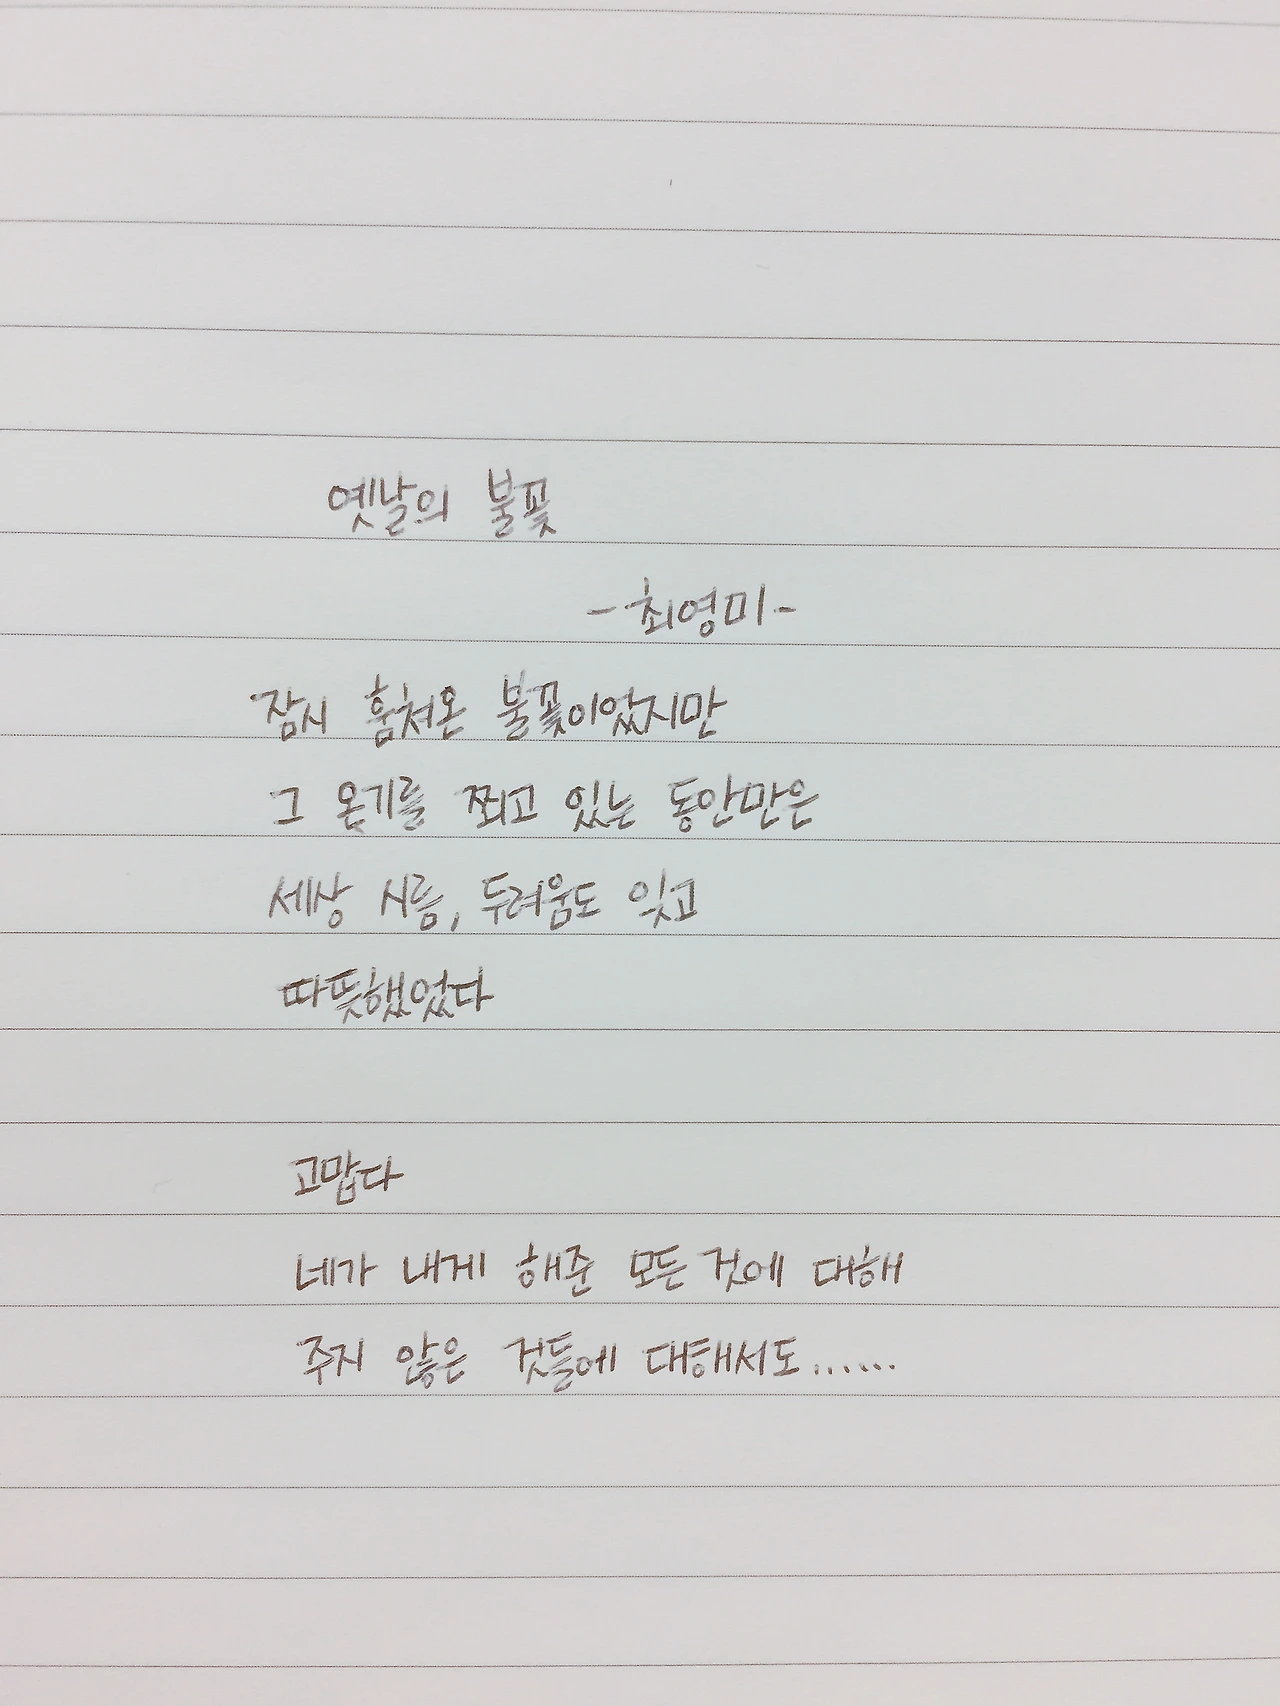 옛날의 불꽃
-최영미-
잠시 훔쳐온 불꽃이었지만
그 온기를 쬐고 있는 동안만은
세상 시름, 두려움도 잊고
따뜻했었다
고맙다
네가 내게 해준 모든 것에 대해
주지 않은 것들에 대해서도......